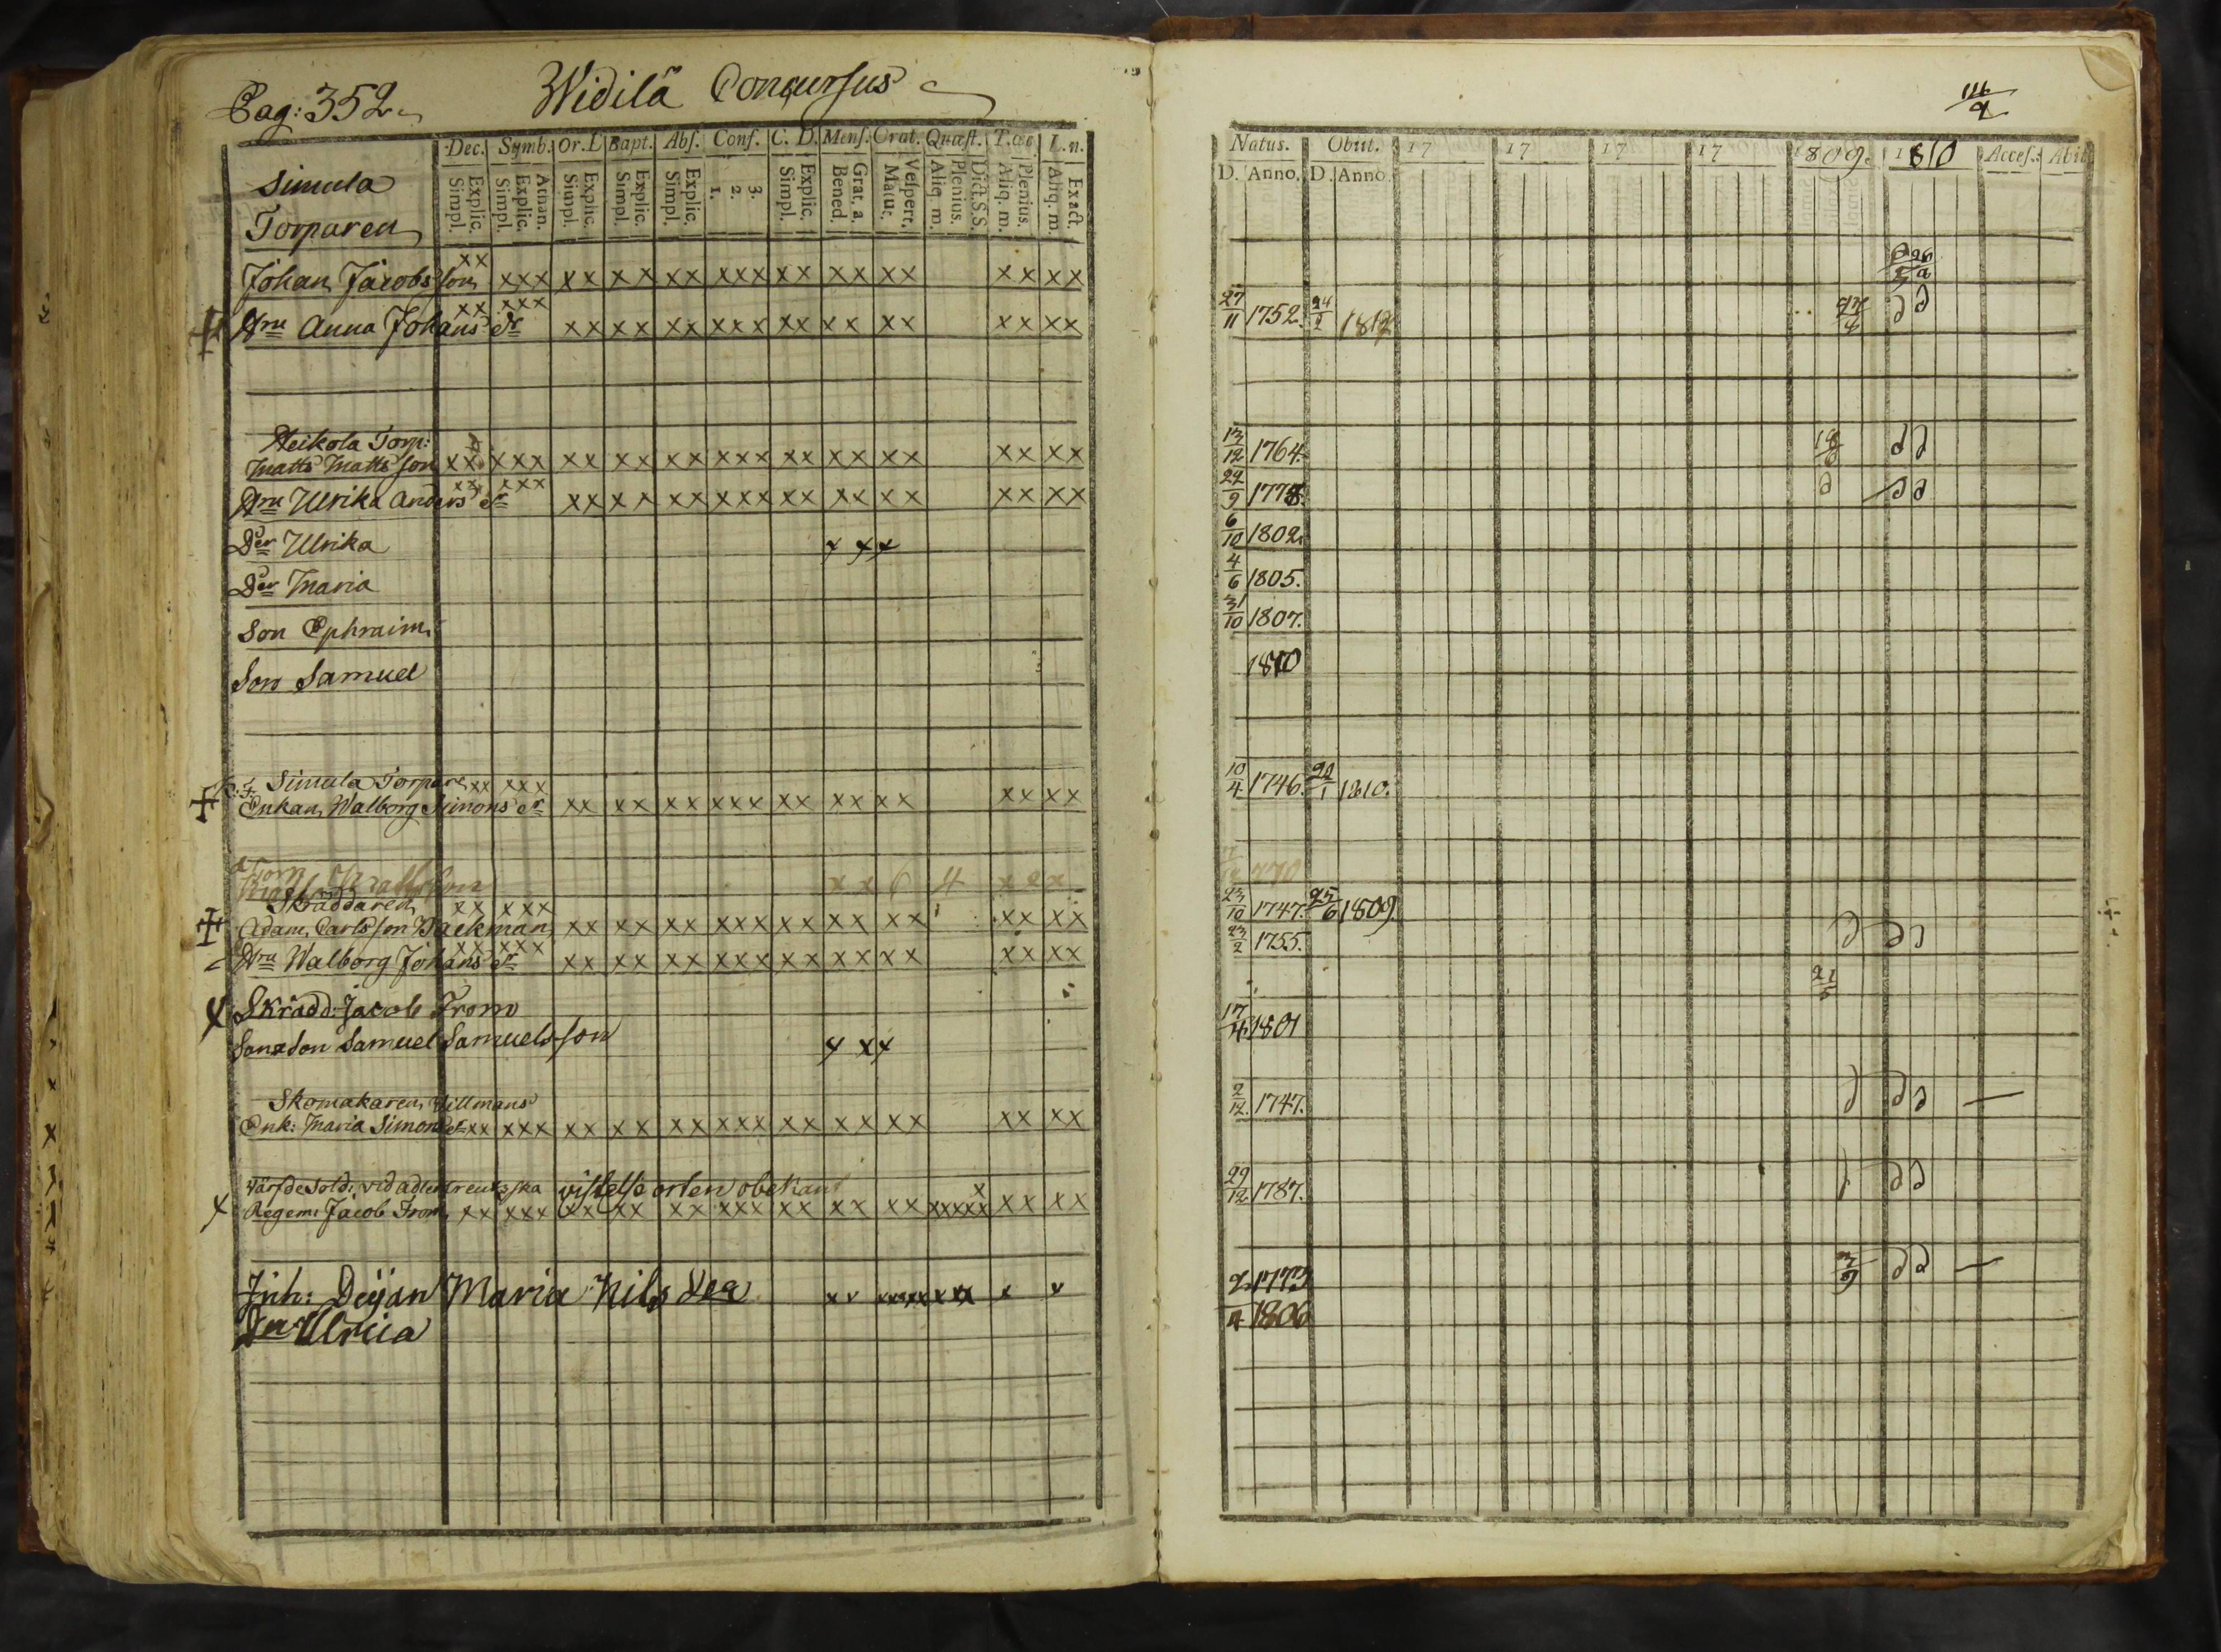 Pag: 352
Widilä Concursus
Dec. Symb. Or. D Bapt. Abs. Conf. C. D. Mens. Orat. Quæst. T. œc L. n.
Explic. Simpl. Athan. Explic. Simpl. Explic. Simpl. Explic. Simpl. Explic. Simpl. 3. 2. 1. Explic. Simpl. Grat. a. Bened. Vespert. Matut. Dict. S.S. Plenius. Aliq. m. Plenius. Aliq. m. Exact. Aliq. m.
Simula
Torparen
Johan Jacobsson xx xxx xx xx xx xxx xx xx xx xx xx
Hru Anna Johans dr xx xxx xx xx xx xxx xx xx xx xx xx
Heikola Torp:
Matts Mattsson xx xxx xx xx xx xxx xx xx xx xx xx
Hru Ulrika Anders dr xx xxx xx xx xx xxx xx xx xx xx xx
Der Ulrika x xx
Der Maria
Son Ephraim
Son Samuel
Simula Torpare xx xxx
Enkan Walborg Simons dr xx xx xx xxx xx xx xx xx xx
Skräddaren xx xxx
Adam Carlsson Backman xx xx xx xxx xx xx xx xx xx
Hru Walborg Johans dr xx xxx xx xx xx xxx xx xx xx xx xx
Skrädd: Jacob From
Samuel Samuelsson x xx
Skomakaren Willmans
Enk: Maria Simons dr xx xxx xx xx xx xxx xx xx xx xx xx
Värfde Sold: vid Adlercreutzska vistelse orten obekant
Regem: Jacob From xx xxx xx xx xx xxx xx xx xx xxxxx xx xx
Inh: Deijan Maria Nils der
Der Ulrica
116/9
Natus. Obiit. 17 17 17 17 1809. 1810 Access. Abit
D. Anno. D. Anno.
27/11 1752. 24/2 1812
13/12 1764.
24/9 1778.
6/10 1802.
4/6 1805.
31/10 1807.
1810
10/4 1746. 22/1 1810.
1770
23/10 1747. 25/6 1809
23/2 1755.
21/5
17/4 1801
2/12 1747.
29/12 1787.
1773
1806